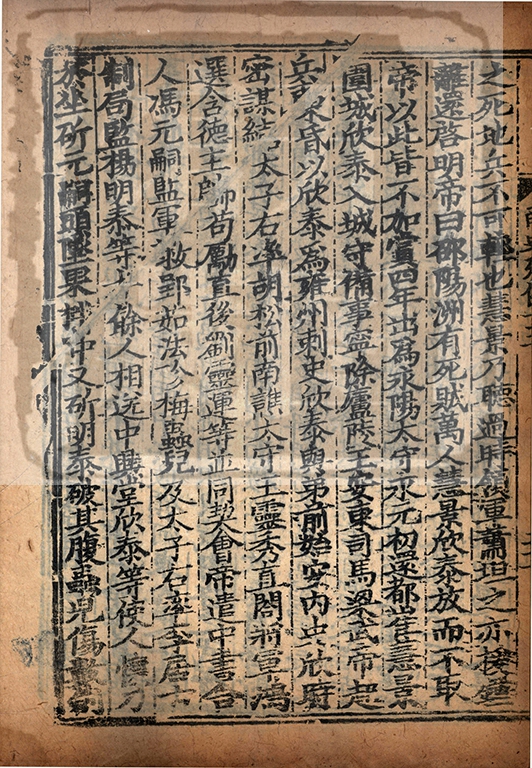 之死地兵不可輕也慧景乃聽過時領軍蕭坦之亦援鍾
離還啓明帝曰邵陽洲有死賊萬人慧景欣泰放而不取
帝以此皆不加賞四年出爲永陽太守永元初還都崔慧景
圍城欣泰入城守備事寧除廬陵王安東司馬梁武帝起
兵東昏以欣泰爲雍州刺史欣泰與弟前始安内史欣時
密謀結太子右率胡松前南譙太守王靈秀直閤將軍鴻
選含德主帥苟勵直後劉靈運等並同契會帝遣中書舍
人馮元嗣監軍救郢茹法珍梅蟲兒及太子右率李居士
制局監楊明泰等十餘人相送中興堂欣泰等使人懷刀
於座斫元嗣頭墜果柈中又斫明泰破其腹蟲兒傷數刺